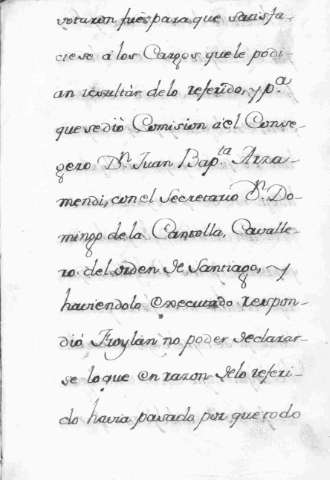 votaron fues para que satisfa-
ciese à los Cargos que le podi-
an resultàr de lo referido, y p.ª
que se diò Comision à el Conse-
gero D.n Juan Bap.ta Arza-
mendi, con el Secretario D.n Do-
mingo de la Cantolla, Cavalle-
ro del orden de Santiago, y
haviendolo executado respon-
diò Froylàn no poder declarar-
se lo que en razon de lo referi-
do havia pasado por que todo